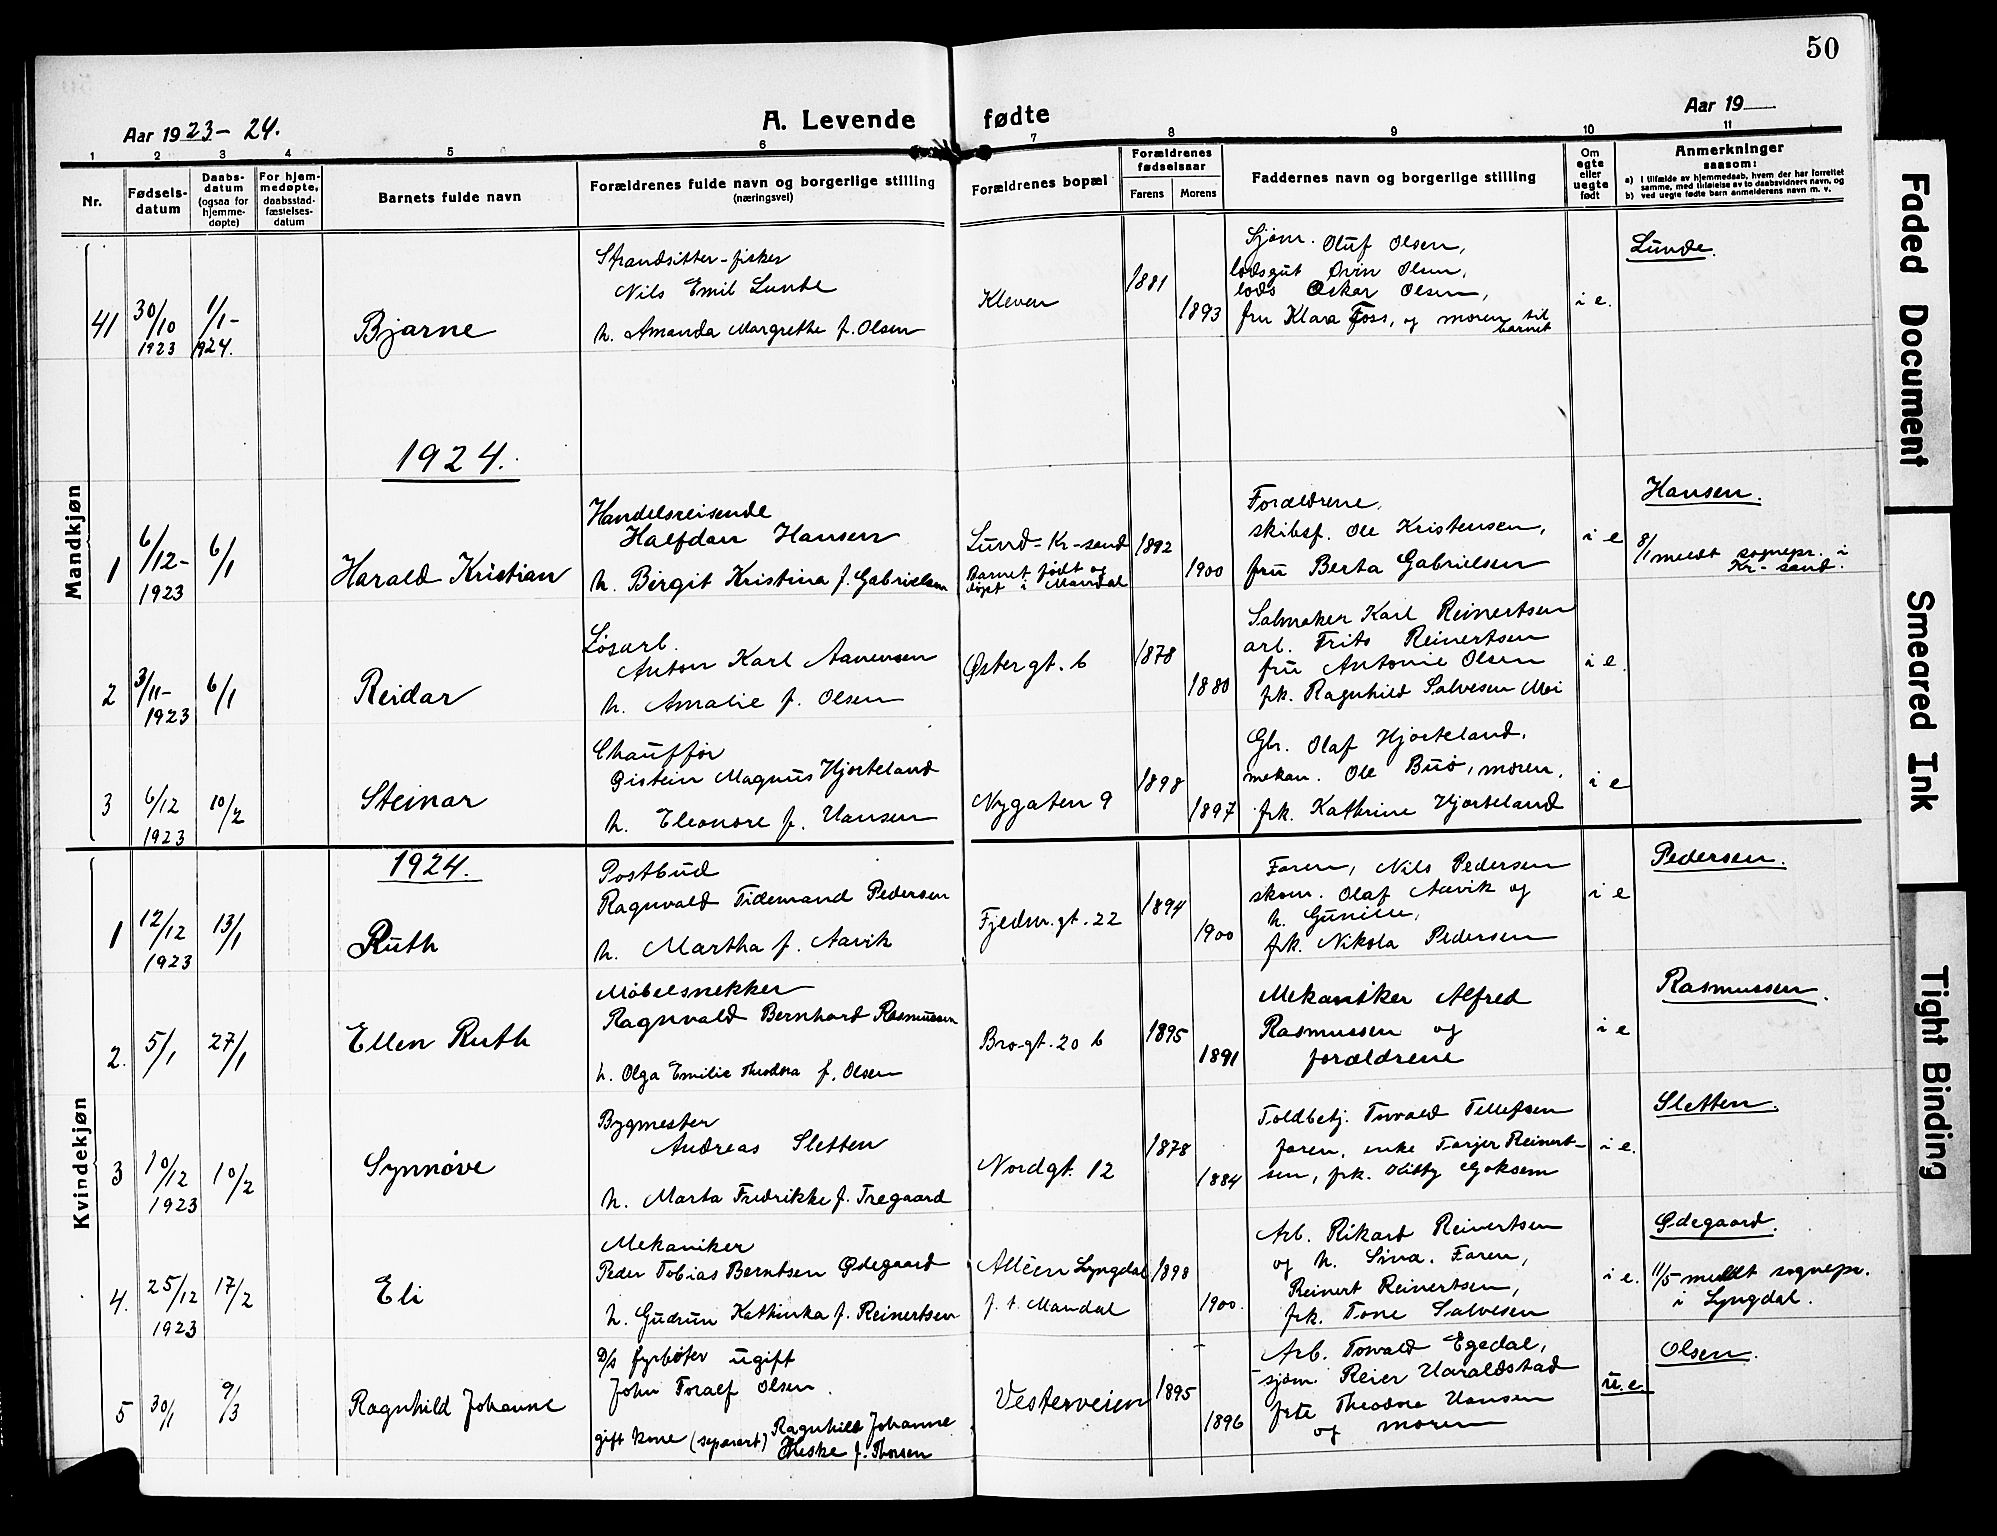 50
Aar 1923-24.
A. Levende fødte
Aar 19
1 2 3 4 5 6 7 8 9 10 11
Nr.
Fødsels-
datum
Daabs-
datum
(ogsaa for
hjemme-
døpte)
For hjem-
medøpte,
daabsstad-
fæstelses-
datum
Barnets fulde navn
Forældrenes fulde navn og borgerlige stilling
(næringsvei)
Forældrenes bopæl
Forældrenes
fødselsaar
Farens Morens
Faddernes navn og borgerlige stilling
Om
egte
eller
uegte
født
Anmerkninger
saasom:
a) I tilfælde av hjemmedaab, hvem der har forrettet
samme, med tilføielse av to daabsvidners navn, og
b) ved uegte fødte barn anmelderens navn m. v.
Mandkjøn
41
30/10
1923
1/1-
1924.
Bjarne
Strandsitter-fisker
Nils Emil Lunde
h. Amanda Margrethe f. Olsen
Kleven
1881
1893
Sjøm. Oluf Olsen,
lodsgut Olsen,
lods Oskar Olsen,
fru Klara Foss, og moren til
barnet
i e.
Lunde.
1924.
1
6/12-
1923
6/1
Harald Kristian
Handelsreisende
Halfdan Hansen
h. Birgit Kristina f. Gabrielsen
Lund-Kr-sand
Barnet født og
døpt i Mandal
1892
1900
Forældrene,
skibsf. Ole Kristensen,
fru Berta Gabrielsen
i e
Hansen.
8/1 meldt sognepr. i
Kr-sand.
2
3/11-
1923
6/1
Reidar
Løsarb.
Anton Karl Aanensen
h. Amalie f. Olsen
Østergt. 6
1878
1880
Salmaker Karl Reinertsen
arb. Frits Reinertsen
fru Antonie Olsen
frk. Ragnhild Salvesen Moi
i e.
3
6/12
1923
10/2
Steinar
Chauffør
Øistein Magnus Hjorteland
h. Eleonore f. Hansen
Nygaten 9
1898
1897
Gbr. Olaf Hjorteland,
mekan. Ole Buø, moren,
frk. Kathrine Hjorteland
i e
Kvindekjøn
1924.
1
12/12
1923
13/1
Ruth
Postbud
Ragnvald Tidemand Pedersen
h. Martha f. Aavik
Fjeldm.gt. 22
1894
1900
Faren, Nils Pedersen
skom. Olaf Aavik og
h. Gunille,
frk. Nikola Pedersen
i e
Pedersen.
2.
5/1
27/1
Ellen Ruth
Møbelsnekker
Ragnvald Bernhard Rasmussen
h. Olga Emilie Theodora f. Olsen
Brogt. 20 b
1895
1891
Mekaniker Alfred
Rasmussen og
forældrene
i e
Rasmussen.
3
10/12
1923
10/2
Synnøve
Bygmester
Andreas Sletten
h. Marta Fredrikke f. Tregaard
Nordgt. 12
1878
1884
Toldbetj. Torvald Tellefsen
faren, enke Tarjer Reinert-
sen, frk.
i e.
Sletten.
4.
25/12
1923
17/2
Eli
Mekaniker
Peder Tobias Berntsen Ødegaard
h. Gudrun Kathinka f. Reinertsen
Alléen Lyngdal
f. t. Mandal
1898
1900.
Arb. Rikard Reinertsen
og h. Sina. Faren,
Reinert Reinertsen,
frk. Tone Salvesen
i e.
Ødegaard.
11/5 meldt sognepr.
i Lyngdal.
5
30/1
9/3
Ragnhild Johanne
D/s fyrbøter ugift
John Toralf Olsen.
gift kone (separert) Ragnhild Johanne
Heske f. Thorsen
Vesterveien
1895
1896
Arb. Torvald Egedal,
sjøm Reier Haraldstad
frk Theodora Hansen
og moren
u. e.
Olsen.
Faded Document
Smeared Ink
Tight Binding